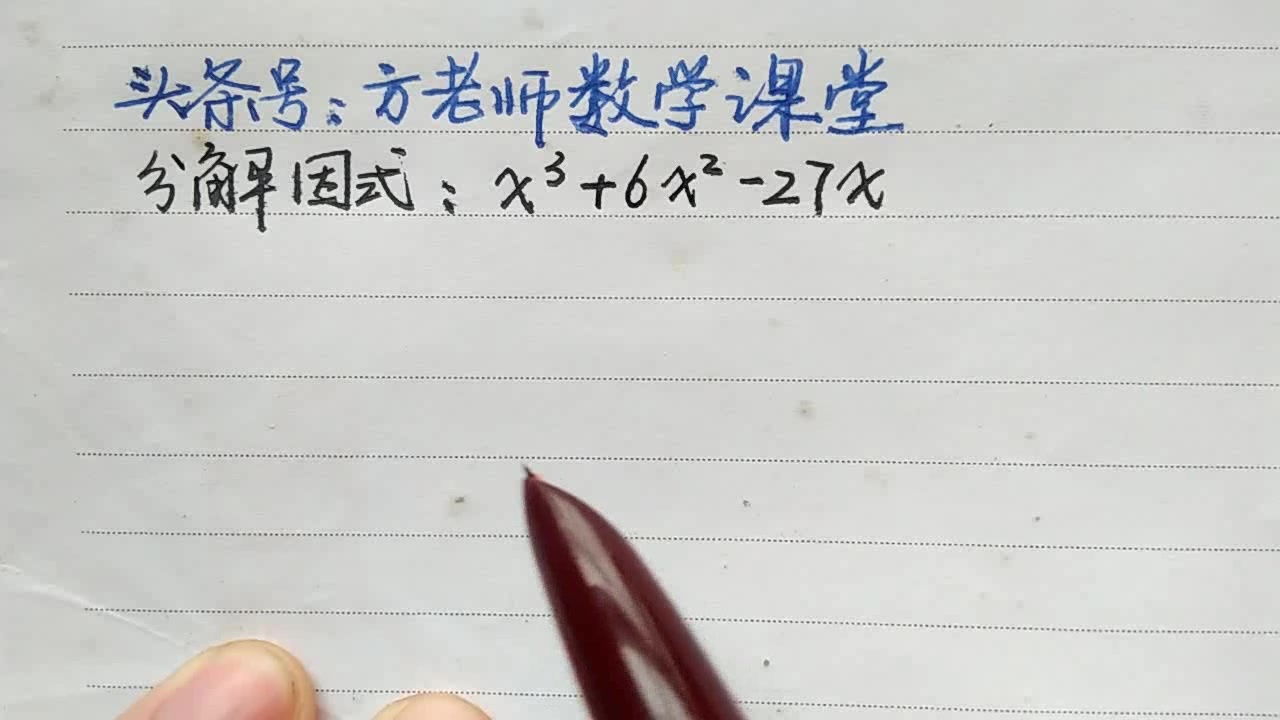 头条号：方老师数学课堂
分解因式：x³+6x²-27x